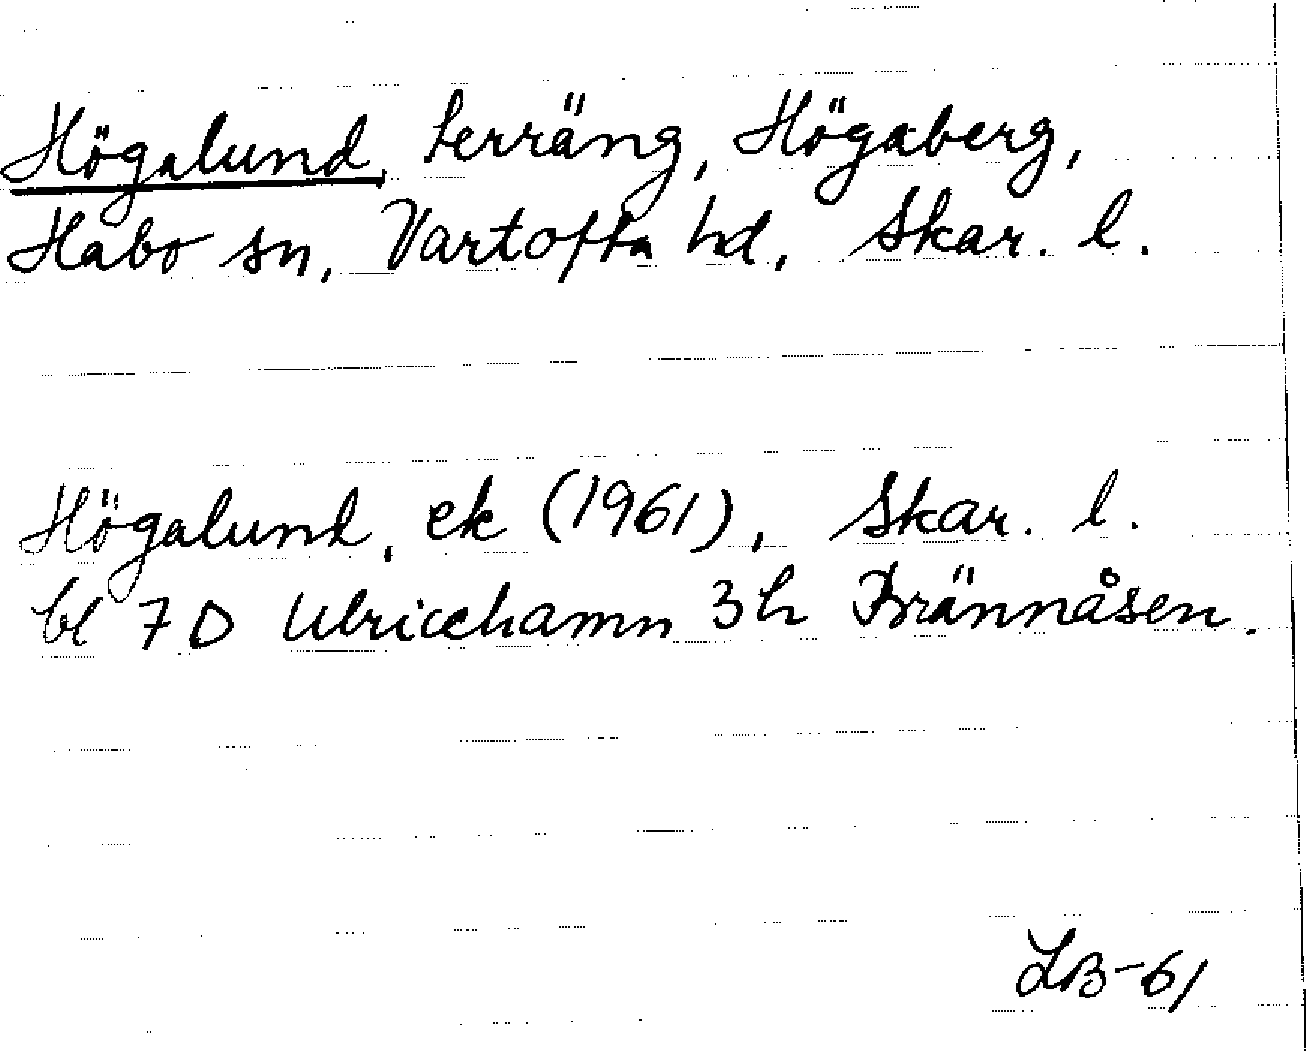 Högalund, terräng, Högaberg,
Habo sn, Vartofta hd, Skar. l.
Högalund, ek (1961), Skar. l.
bl 7 D Ulricehamn 3 h Brännåsen.
LB-61